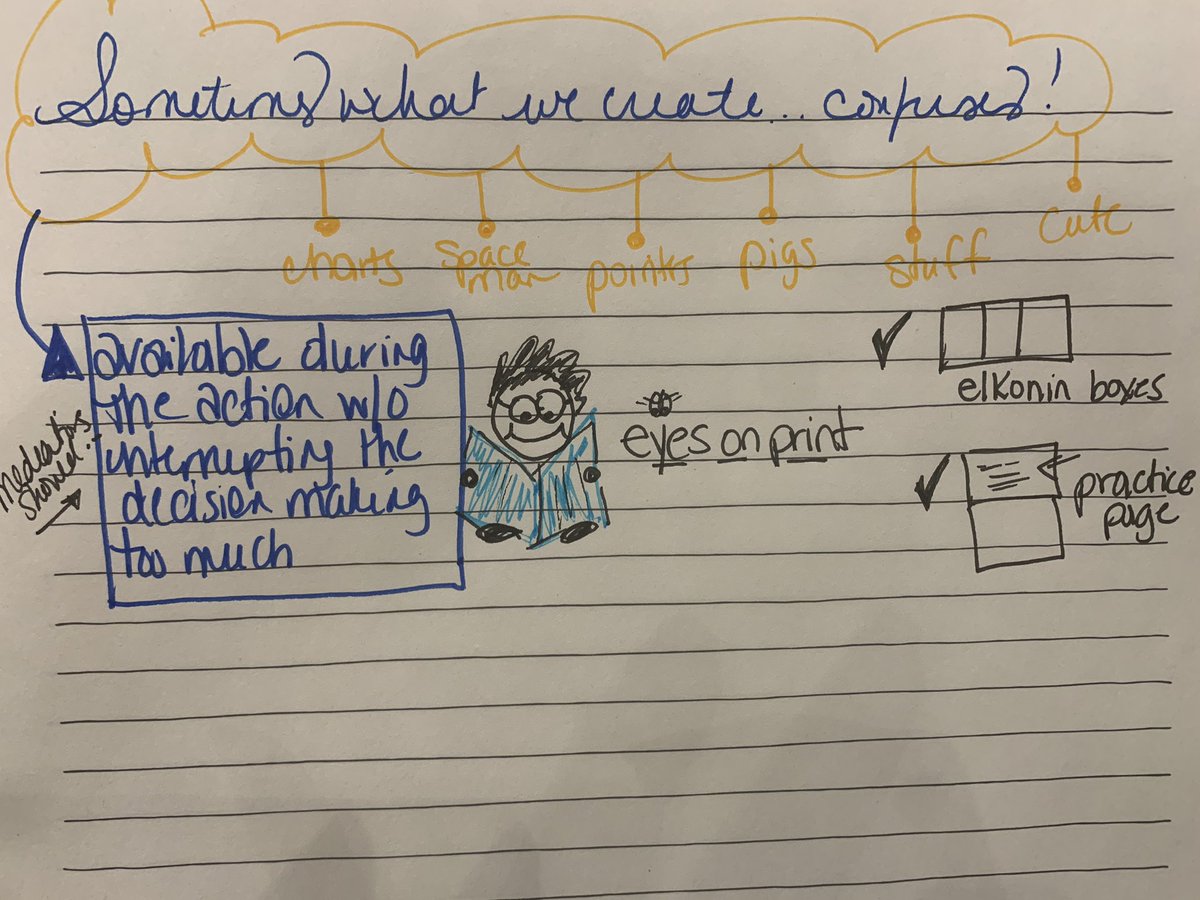 Sometimes what we create... confuses!
charts
space
man
pigs
stuff
cute
available during
the action w/o
interrupting the
decision making
too much
eyes on print
elkonin boxes
practice
page